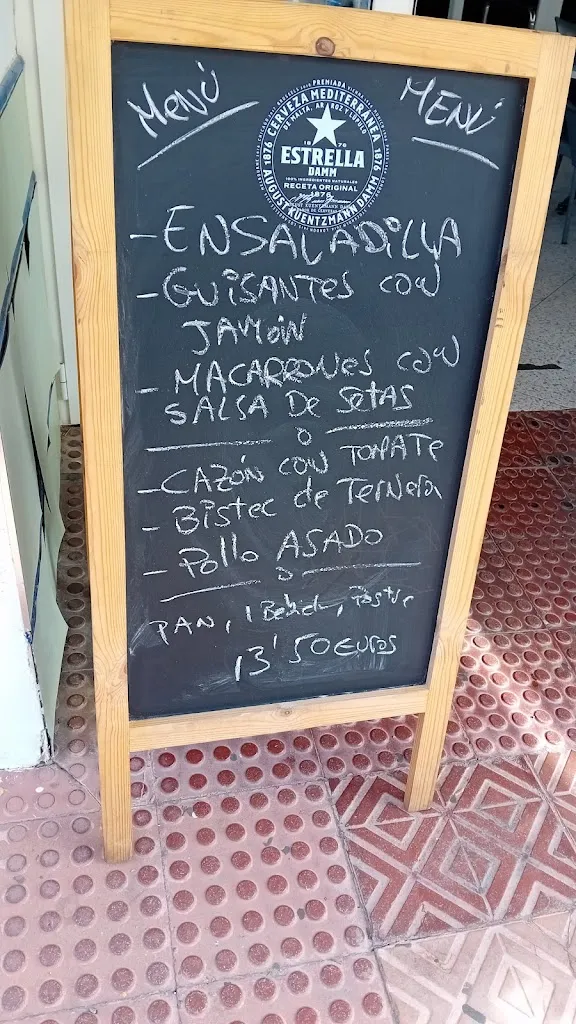 Menú
MENÚ
PREMIADA
CERVEZA MEDITERRÁNEA
DE MALTA, ARROZ Y LÚPULO
1876
1876
1876
ESTRELLA
DAMM
100% INGREDIENTES NATURALES
RECETA ORIGINAL
1876
AUGUST KUENTZMANN DAMM
- ENSALADILLA
- GUISANTES CON
JAMÓN
- MACARRONES CON
SALSA DE SETAS
o
- CAZÓN CON TOMATE
- BISTEC de TERNERA
- Pollo ASADO
o
PAN, 1 Bebida, Postre
13'50 EUROS